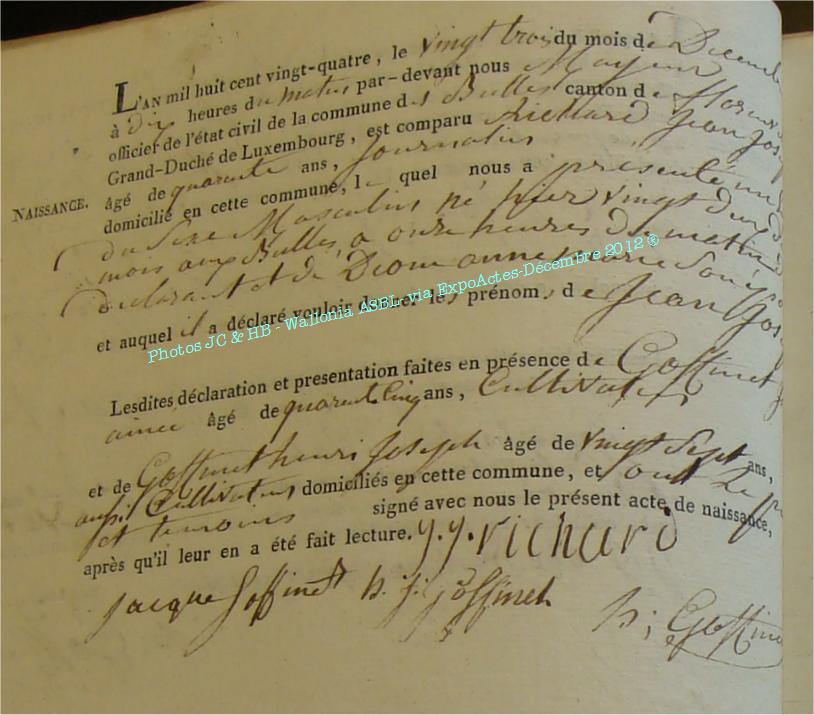 L'AN mil huit cent vingt-quatre, le vingt trois du mois de Decem
à dix heures du matin par-devant nous Mayeur
officier de l'état civil de la commune des Bulles canton de floren
Grand-Duché de Luxembourg, est comparu Richard Jean Jos
NAISSANCE. âgé de quarante ans, Journalier
domicilié en cette commune, le quel nous a présenté un
du Sexe Masculin né hier vingt deux d
mois aux Bulles, a onze heures du matin
declarant et de Dione anne marie son
et auquel il a déclaré vouloir donner les prénoms de Jean Jos
Photos JC & HB - Wallonia ASBL-via ExpoActes-Décembre 2012 ®
Lesdites déclaration et presentation faites en présence de Goffinet
ainé âgé de quarante cinq ans, Cultivateur
et de Goffinet henri Joseph âgé de vingt Sept ans,
aussi Cultivateur domiciliés en cette commune, et ont le
et temoins signé avec nous le présent acte de naissance,
après qu'il leur en a été fait lecture. j. j. richard
jacque Goffinet h. j. goffinet
h; Goffin